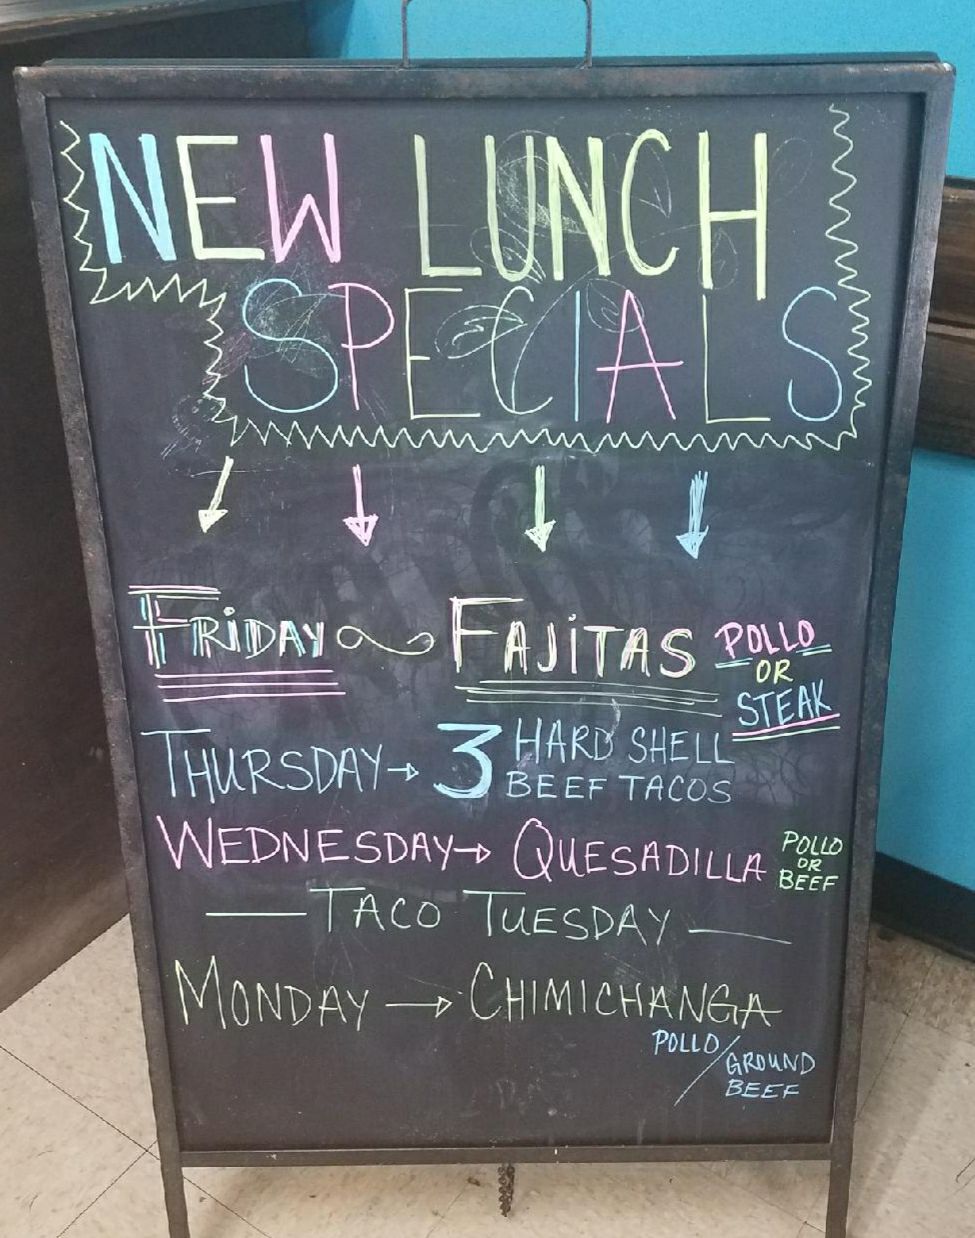 NEW LUNCH
SPECIALS
FRIDAY FAJITAS POLLO
OR
STEAK
THURSDAY → 3 HARD SHELL
BEEF TACOS
WEDNESDAY → QUESADILLA POLLO
OR
BEEF
— TACO TUESDAY —
MONDAY → CHIMICHANGA
POLLO / GROUND
BEEF